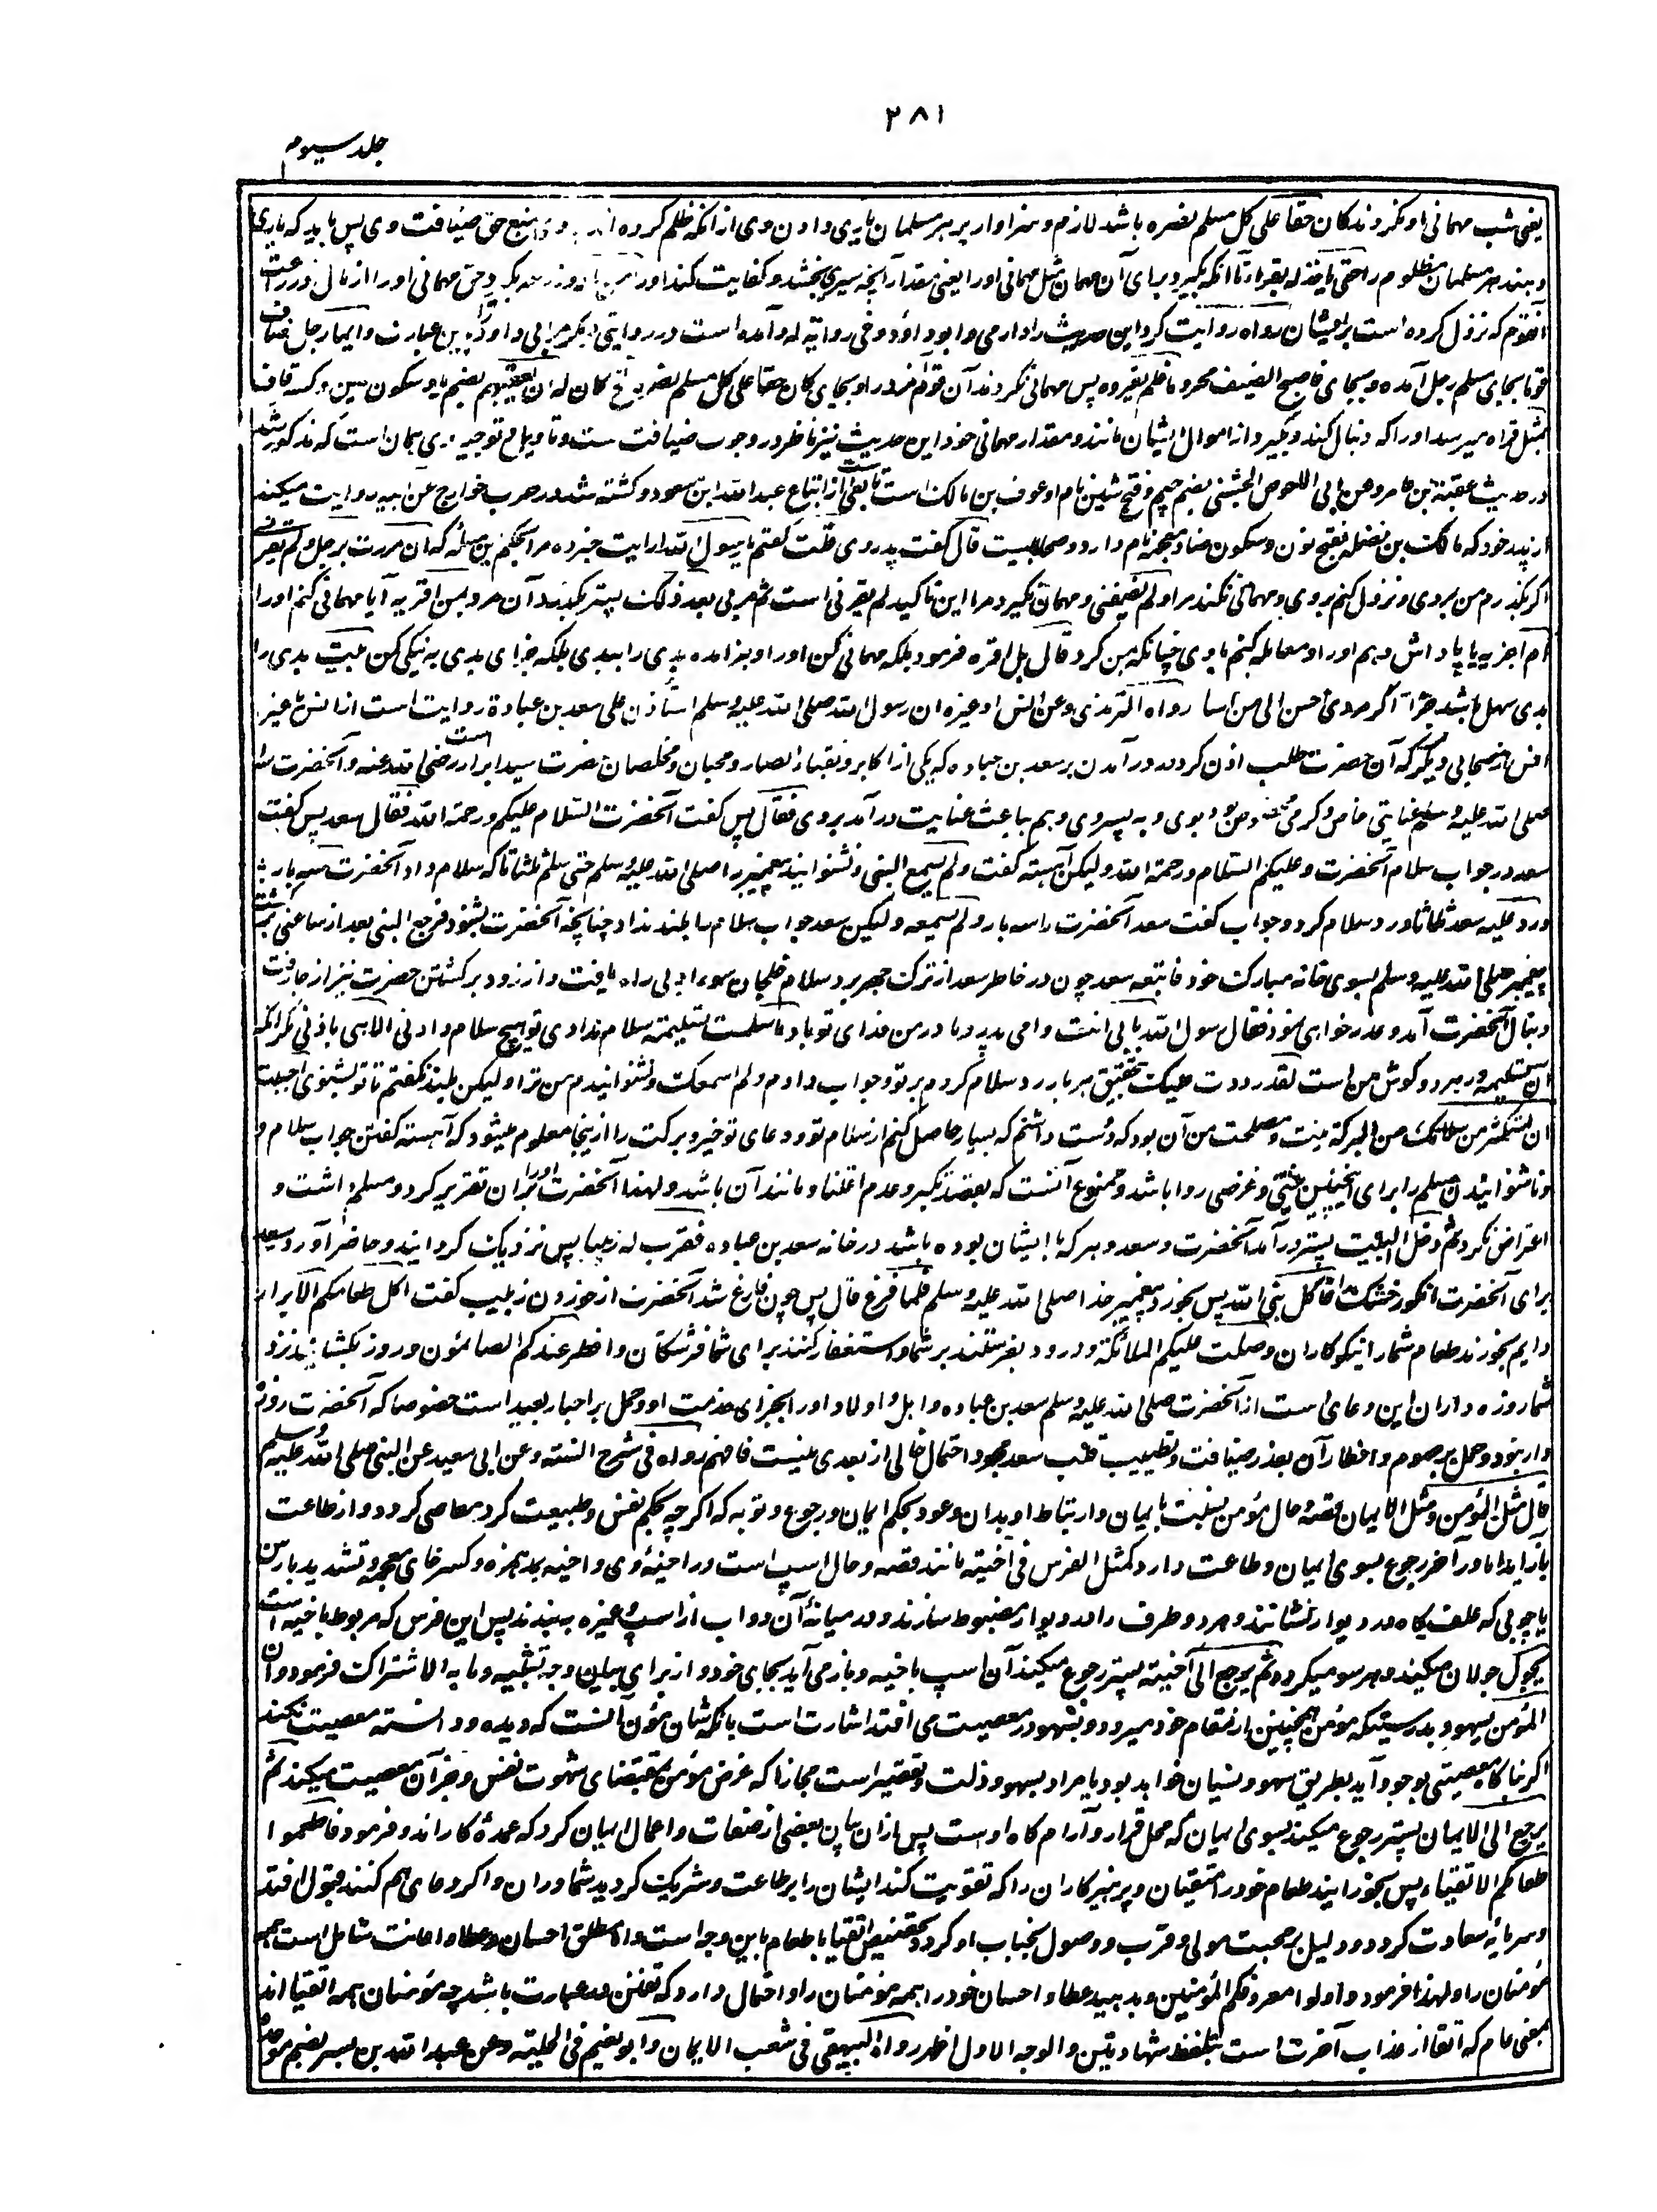 ۳۸۱
جلد سیوم
یعنی شب مهمانی او نکردند کان حقا علی کل مسلم نصره باشد لازم و سزاوار بر هر مسلمان یاری دادن وی از آنکه ظلم کرده اند و منع حق ضیافت وی پس باید که یاری
دهند هر مسلمان مظلوم را حتی یاخذ له بقراه تا آنکه بگیرد برای آن مهمان مثل مهمانی او را یعنی مقدار آنچه سیری بخشد و کفایت کند او را حق مهمانی او را از مال و زراعت
آنقوم که نزول کرده است بر ایشان رواه روایت کرد این حدیث را دارمی و ابو داؤد و فی روایة له و آمده است در روایتی دیگر مر ابی داود را بدین عبارت و ایما رجل ضاف
قوما بجای مسلم رجل آمده و بجای فاصبح الضیف محروما فلم یقروه پس مهمانی نکردند آن قوم مر او را و بجای کان حقا علی کل مسلم نصره الخ کان له ان یعقبهم بضم یا و سکون عین و کسر قاف
بمثل قراه میرسد او را که دنبال کند و بگیرد از اموال ایشان مانند و مقدار مهمانی خود این حدیث نیز ناظر در وجوب ضیافت ست و تاویل و توجیه وی همان است که مذکور شد
در حدیث عقبة بن عامر وعن ابی الاحوص الجشمی بضم جیم و فتح شین نام او عوف بن مالک است تابعی ست از اتباع عبد الله ابن مسعود و کشته شد در حرب خوارج عن ابیه روایت میکند
از پدر خود که مالک بن نضله بفتح نون و سکون ضاد معجمه نام دارد و صحابیست قال گفت پدر وی قلت گفتم یا رسول الله ارایت خبر ده مرا حکم این مسئله که ان مررت برجل و لم یقرنی
اگر بگذرم من بمردی و نزول کنم بروی و مهمانی نکند مرا و لم یضیفنی و مهمان نگیرد مرا این تاکید لم یقرنی است ثم مر بی بعد ذلک پستر بگذرد آن مرد بمن اقریه آیا مهمانی کنم او را
ام اجزیه یا پاداش دهم او را و معامله کنم با وی چنانکه بمن کرد قال بل اقره فرمود بلکه مهمانی کن او را و بدی را ببدی بلکه جزای بدی به نیکی کن بیت بدی را
بدی سهل باشد جزا اگر مردی احسن الی من اسا رواه الترمذی وعن انس او غیره ان رسول الله صلی الله علیه وسلم استاذن علی سعد بن عبادة روایت است از انس یا غیر
انس از صحابی دیگر که آن حضرت طلب اذن کرد در آمدن بر سعد بن عباده که یکی از اکابر و نقباء انصار و محبان و مخلصان حضرت سید ابرار است رضی الله عنه و آنحضرت را
صلی الله علیه وسلم عنایتی خاص و کرمی مخصوص بود بوی و به پسر وی و هم بباعث عنایت در آمد بروی فقال پس گفت آنحضرت السلام علیکم ورحمة الله فقال سعد پس گفت
سعد در جواب سلام آنحضرت و علیکم السلام ورحمة الله ولیکن آهسته گفت و لم یسمع النبی و نشنوانید پیغمبر را صلی الله علیه وسلم حتی سلم ثلثا تا آنکه سلام داد آنحضرت سه بار
ورد علیه سعد ثلاثا ورد سلام کرد و جواب گفت سعد آنحضرت را سه بار و لم یسمعه ولیکن سعد جواب سلام را بلند نداد چنانچه آنحضرت بشنود فرجع النبی بعد از ساعتی برگشت
پیغمبر صلی الله علیه وسلم بسوی خانه مبارک خود فاتبعه سعد چون در خاطر سعد از ترک جهر برد سلام خلجان سوء ادبی راه یافت و از زود برگشتن حضرت نیز از جا رفت
دنبال آنحضرت آمد و عذر خواهی نمود فقال یا رسول الله بابی انت وامی پدر و مادر من فدای تو باد ما سلمت تسلیمة سلام ندادی تو هیچ سلام دادنی الا هی باذنی مگر آنکه
آن تسلیمه در هر دو گوش من است لقد رددت علیک بتحقیق هر بار رد سلام کردم بر تو و جواب دادم و لم اسمعک و نشنوانیدم من ترا و لیکن بلند نگفتم تا تو بشنوی احببت
ان استکثر من سلامک ومن البرکة نیت و مصلحت من آن بود که دوست داشتم که بسیار حاصل کنم از سلام تو و دعای تو خیر و برکت را ازینجا معلوم میشود که آهسته گفتن جواب سلام و
نا شنوانیدن مسلم را برای اینچنین نیتی و غرضی روا باشد و ممنوع آنست که بقصد تکبر و عدم اعتنا و مانند آن باشد و لهذا آنحضرت او را بر آن تقریر کرد و مسلم داشت و
اعتراض نکرد ثم دخل البیت پستر در آمد آنحضرت و سعد و هر که با ایشان بوده باشد در خانه سعد بن عباده فقرب له زبیبا پس نزدیک گردانید و حاضر آورد سعد
برای آنحضرت انگور خشک را فاکل نبی الله پس بخورد پیغمبر خدا صلی الله علیه وسلم فلما فرغ قال پس چون فارغ شد آنحضرت از خوردن زبیب گفت اکل طعامکم الابرار
دایم بخورند طعام شما را نیکوکاران وصلت علیکم الملائکة و درود بفرستند بر شما و استغفار کنند برای شما فرشتگان وافطر عندکم الصائمون و روزه بکشایند نزد
شما روزه داران این دعای است از آنحضرت صلی الله علیه وسلم سعد بن عباده و اهل و اولاد او را بجزای خدمت او و حمل بر اخبار بعید است خصوصا که آنحضرت روزه
دار نبود و حمل بر صوم و افطار آن بعذر ضیافت و تطییب قلب سعد مجرد احتمال خالی از بعدی نیست فافهم رواه فی شرح السنة وعن ابی سعید عن النبی صلی الله علیه وسلم
قال مثل المؤمن ومثل الایمان قصه و حال مؤمن بنسبت بایمان و ارتباط او بدان و عود بحکم ایمان و رجوع و توبه که اگر چه بحکم نفس و طبیعت گرد معاصی گردد و از طاعت
باز آید اما در آخر رجوع بسوی ایمان و طاعت دارد کمثل الفرس فی آخیته مانند قصه و حال اسپ است در آخیهٔ وی و آخیه بمد همزه و کسر خای معجمه و تشدید یا رسن
یا چوبی که علف گاه در دیوار نشانند و هر دو طرف را در دیوار مضبوط سازند و در میانهٔ آن دواب از اسپ و غیره به بندند پس این فرس که مربوط باخیه است
یجول جولان میکند و هر سو میگردد ثم یرجع الی آخیته پستر رجوع میکند آن اسپ باخیه و باز می آید بجای خود و از برای بیان وجه تشبیه و ما به الاشتراک فرمود وان
المؤمن یسهو و بدرستیکه مؤمن همچنین از مقام خود میرود و بسهو در معصیت می افتد اشارت است بانکه شان مؤمن آنست که دیده و دانسته معصیت نکند
اگر ناگاه معصیتی بوجود آید بطریق سهو و نسیان خواهد بود یا مراد بسهو و ذلت و تقصیر است مجازا که غرض مؤمن بمقتضای شهوت نفس و جز آن معصیت میکند ثم
یرجع الی الایمان پستر رجوع میکند بسوی ایمان که محل قرار و آرام گاه اوست پس ازان بیان بعضی از صفات و اعمال ایمان کرد که عمدهٔ کار اند و فرمود فاطعموا
طعامکم الاتقیاء پس بخورانید طعام خود را متقیان و پرهیزگاران را که تقویت کند ایشان را بر طاعت و شریک گردید شما در آن و اگر دعای هم کنند قبول افتد
و سرمایه سعادت گردد و دلیل بر محبت مولی و قرب و وصول بجناب او گردد تخصیص اتقیا باطعام باین وجه است والا مطلق احسان و عطا و اعانت شامل است همه
مؤمنان را و لهذا فرمود و اولوا معروفکم المؤمنین و بدهید عطا و احسان خود را همه مؤمنان را و احتمال دارد که تفنن در عبارت باشد چه مؤمنان همه اتقیا اند
بمعنی عام که اتقا از عذاب آخرت است بتلفظ شهادتین والوجه الاول اظهر رواه البیهقی فی شعب الایمان وابو نعیم فی الحلیة وعن عبد الله بن بسر بضم موحده